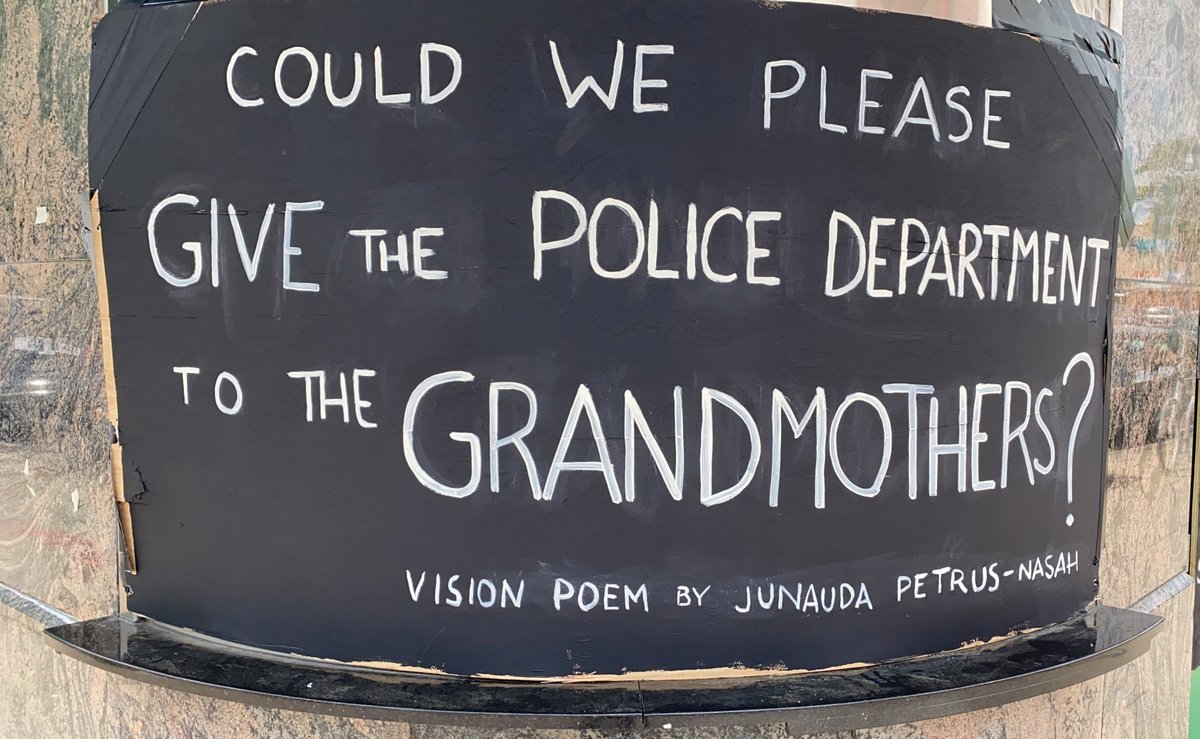 COULD WE PLEASE
GIVE THE POLICE DEPARTMENT
TO THE GRANDMOTHERS?
VISION POEM BY JUNAUDA PETRUS-NASAH